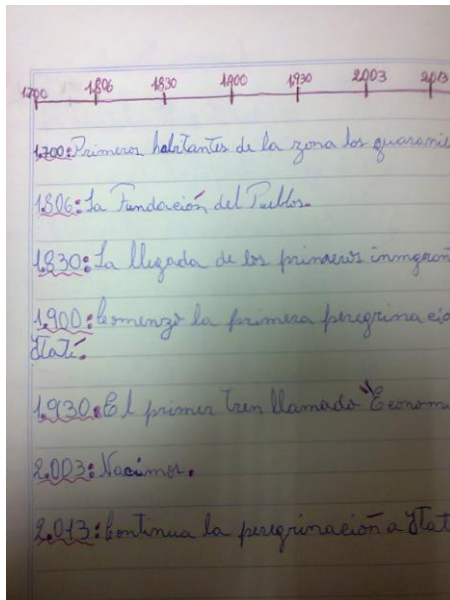 1700 1806 1830 1900 1930 2003 2013
1.700: Primeros habitantes de la zona los guaranie
1.806: La Fundación del Pueblos.
1.830: La llegada de los primeros inmgran
1.900: Comenzó la primera peregrinació
Itatí.
1.930: El primer tren llamado "Economi
2.003: Nacimos.
2.013: Continua la peregrinación a Itat